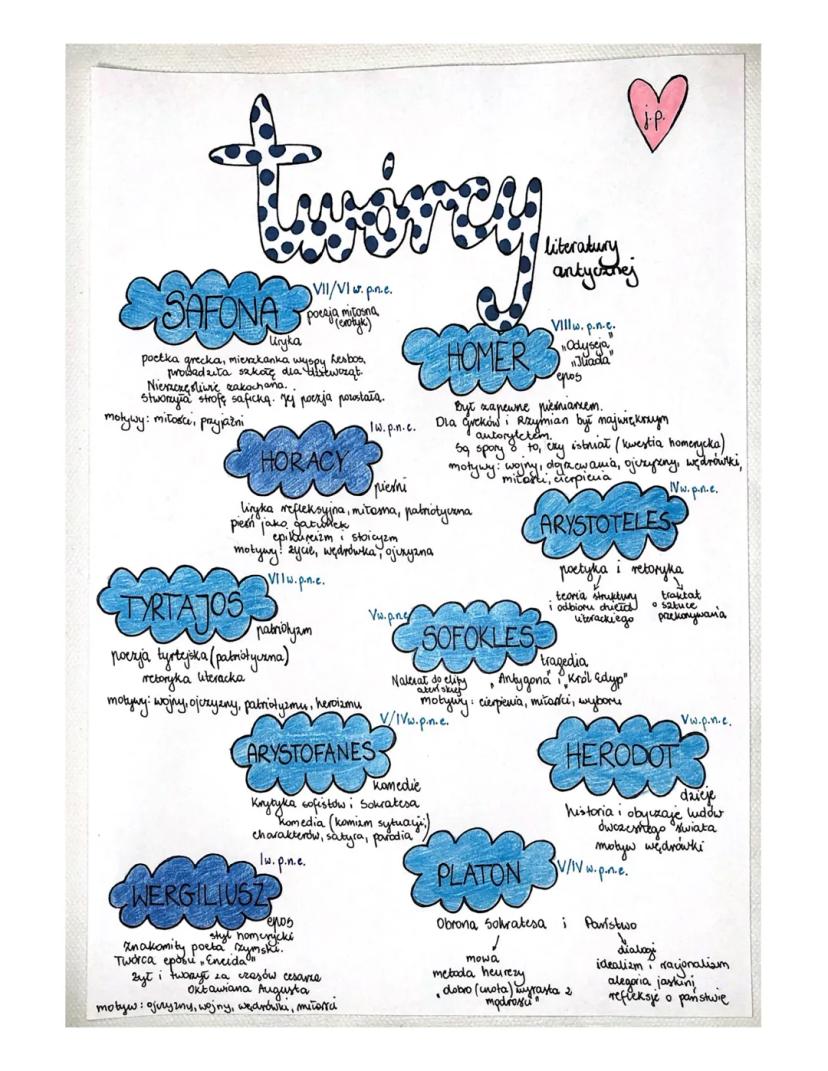 j.p.
twórcy
literatury
antycznej
SAFONA
VII/VI w. p.n.e.
poezja miłosna
(erotyk)
liryka
poetka grecka, mieszkanka wyspy Lesbos,
prowadziła szkołę dla dziewcząt.
Nieszczęśliwie zakochana.
Stworzyła strofę saficką. Jej poezja powstała.
motywy: miłości, przyjaźni
HOMER
VIII w. p.n.e.
"Odyseja"
"Iliada"
epos
Był zapewne pieśniarzem.
Dla Greków i Rzymian był największym
autorytetem.
Są spory o to, czy istniał (kwestia homerycka)
motywy: wojny, dojrzewania, ojczyzny, wędrówki,
miłości, cierpienia
HORACY
I w. p.n.e.
pieśni
liryka refleksyjna, miłosna, patriotyczna
pieśń jako gatunek
epikureizm i stoicyzm
motywy: życie, wędrówka, ojczyzna
ARYSTOTELES
IV w. p.n.e.
poetyka i retoryka
teoria struktury
i odbioru dzieła
literackiego
traktat
o sztuce
przekonywania
TYRTAJOS
VII w. p.n.e.
patriotyzm
poezja tyrtejska (patriotyczna)
retoryka literacka
motywy: wojny, ojczyzny, patriotyzmu, heroizmu
SOFOKLES
V w. p.n.e.
tragedia
Należał do elity
ateńskiej
"Antygona i "Król Edyp"
motywy: cierpienia, miłości, wyboru
ARYSTOFANES
V/IV w. p.n.e.
komedie
Krytyka sofistów i Sokratesa
komedia (komizm sytuacji,
charakterów, satyra, parodia
HERODOT
V w. p.n.e.
dzieje
historia i obyczaje ludów
ówczesnego świata
motyw wędrówki
WERGILIUSZ
I w. p.n.e.
epos
styl homerycki
Znakomity poeta rzymski.
Twórca eposu "Eneida"
żył i tworzył za czasów cesarza
Oktawiana Augusta
motyw: ojczyzny, wojny, wędrówki, miłości
PLATON
V/IV w. p.n.e.
Obrona Sokratesa i Państwo
mowa
metoda heurezy
"dobro (cnota) wyrasta z
mądrości"
dialogi
idealizm i racjonalizm
alegoria jaskini
refleksje o państwie